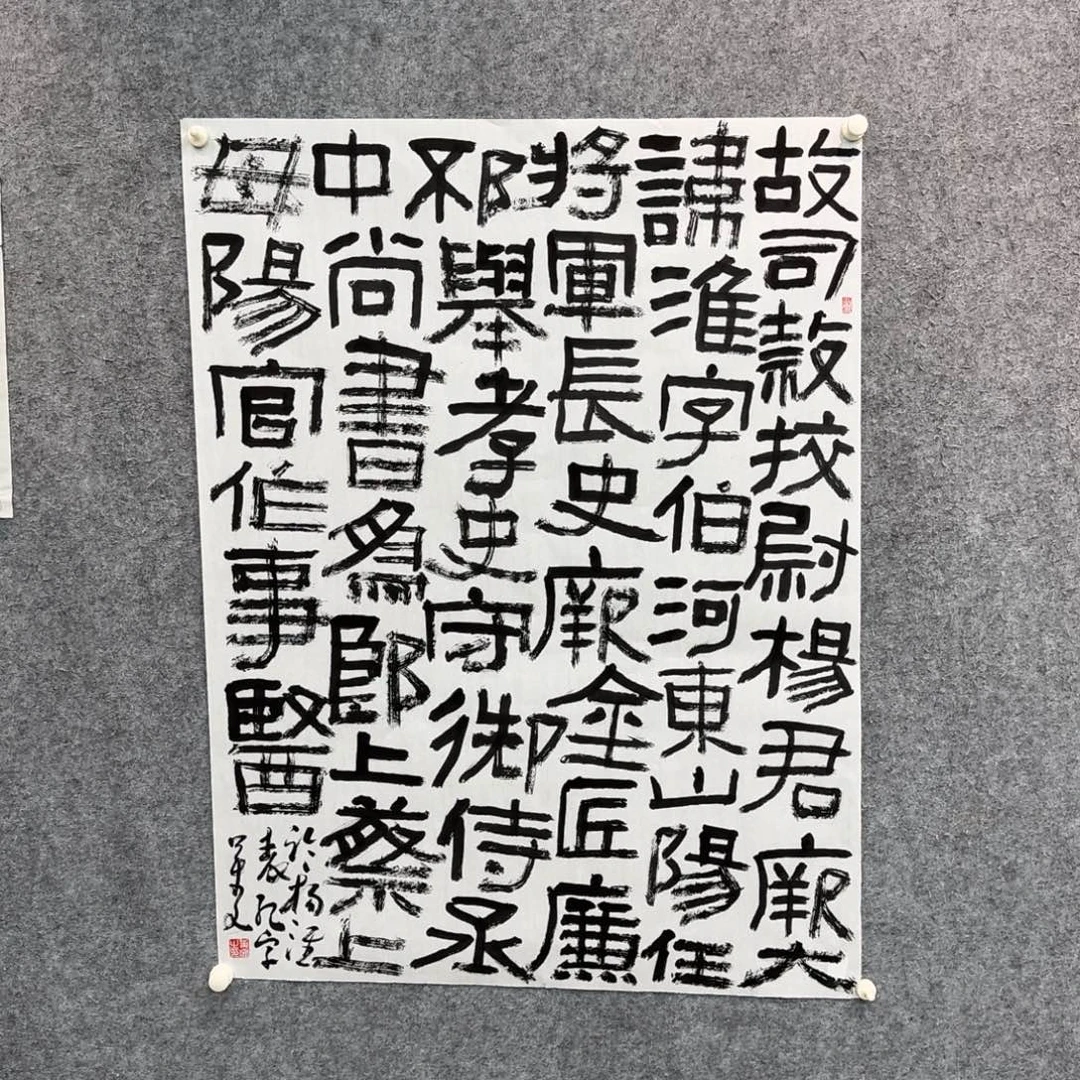 故司隸挍尉楊君厥大
諱淮字伯河東山陽任
將軍長史厥金匠廉
邳舉孝史守御侍丞
中尚書為郎上蔡上
毋陽官作事醫
臨楊淮
表記字